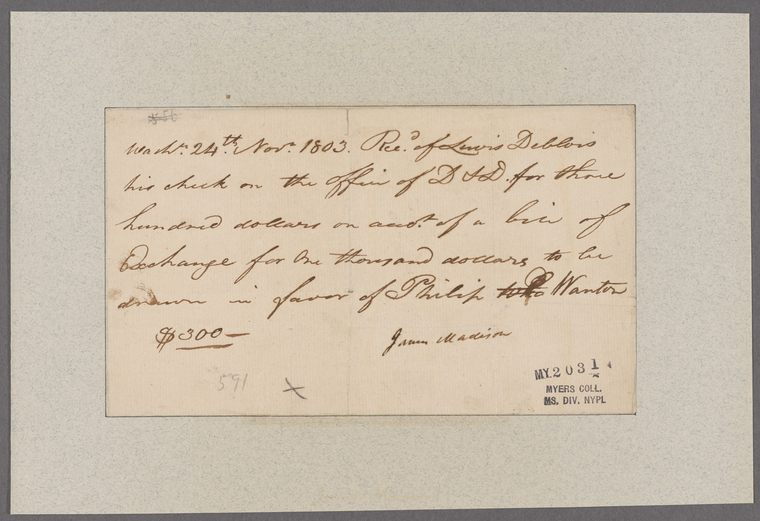 Washn. 24th. Novr. 1803. Recd. of Lewis Deblois
his check on the office of D & D. for three
hundred dollars on accot. of a bill of
Exchange for One thousand dollars to be
drawn in favor of Philip Wanton
$300—
James Madison
591
MY. 2031
MYERS COLL.
MS. DIV. NYPL